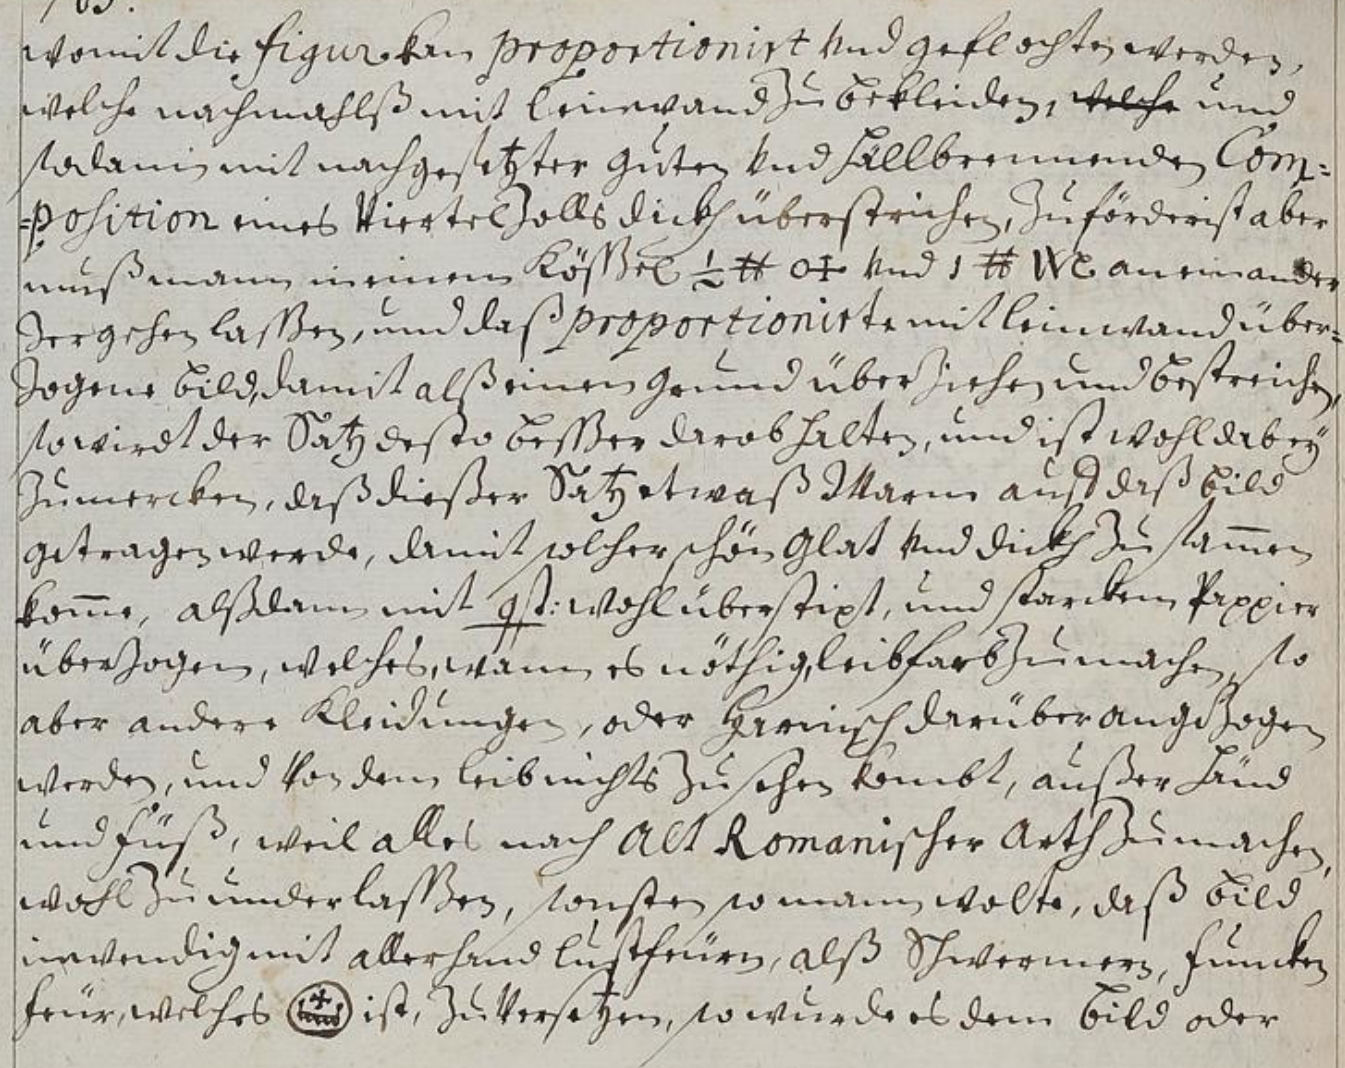 womit die figur kan proportionirt vnd geflochten werden,
welche nachmahlß mit leinwand zu bekleiden, welche und
sodann mit nachgesetzter guten vnd hällbrennenden Com-
-position eines Viertel Zolls dickh überstrichen, zuförderist aber
muß mann in einem Kößel ½ ℔ und 1 ℔ an einander
zergehen lassen, und daß proportionirte mit leinwand über-
zogene bild, damit alß einen grund überziehen und bestreichen,
so wirdt der Satz desto besser darob halten, und ist wohl dabeÿ
zumercken, daß dießer Satz etwaß Warm auff daß bild
getragen werde, damit solcher schön glat vnd dickh zusammen
komme, alßdann mit wohl überstipt, und starckem Pappier
überzogen, welches, wann es nöthig, leibfarb zumachen, so
aber andere Kleidungen, oder Harnisch darüber angezogen
werden, und von dem leib nichts zusehen kombt, außer händ
und füß, weil alles nach alt Romanischer Arth zumachen,
wohl zu underlassen, sonsten so mann wolte, daß bild
inwendig mit allerhand lustfeürn, alß Schwermern, funcken
feür, welches ist, zu versetzen, so wurde es dem bild oder